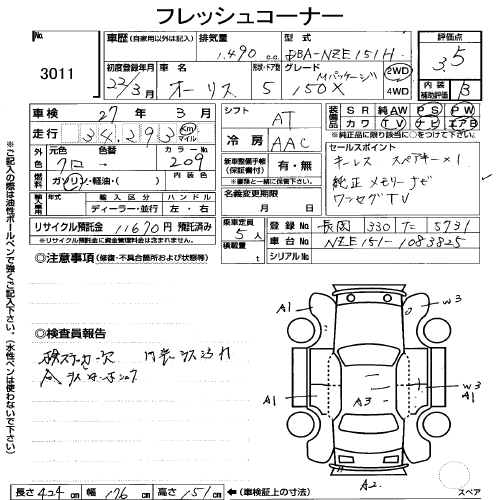 フレッシュコーナー
No.
3011
車歴(自家用以外は記入) 排気量 型式 評価点
1.490 c.c. DBA-NZE151H 3.5
初度登録年月 車名 形状・ドア型 グレード Mパッケージ 2WD 4WD 内装 補助評価 B
22/3月 オーリス 5 150X
車検 27年 3月
走行 34,293 km マイル
シフト AT
冷房 AAC
装備品 SR 純AW PS PW
カワ TV ナビ エアB
※純正品に限り該当に○をつけて下さい。
外色 元色 クロ 色替 カラーNo. 209
燃料 ガソリン・軽油・( ) 内装色
新車整備手帳(保証書付) 有・無
※書類と一緒に保管して下さい。
セールスポイント
キーレス スペアキー×1
純正メモリーナビ
ワンセグTV
輸入車用 年式 輸入区分 ハンドル
ディーラー・並行 左・右
名義変更期限
月 日
リサイクル預託金 11670円 預託済み
※リサイクル預託金に資金管理料金は含まれておりません。
乗車定員 5人
積載量 t
登録No. 長岡 330 5731
車台No. NZE151-1083825
シリアルNo.
◎注意事項(修復・不具合箇所および状態等)
◎検査員報告
内装
A1 W3
A1 A3 W3 A1
A2
スペア
長さ 424cm 幅 176cm 高さ 151cm ←(車検証上の寸法)
※ご記入の際は油性ボールペンで強くご記入下さい。(水性ペンは使わないで下さい)